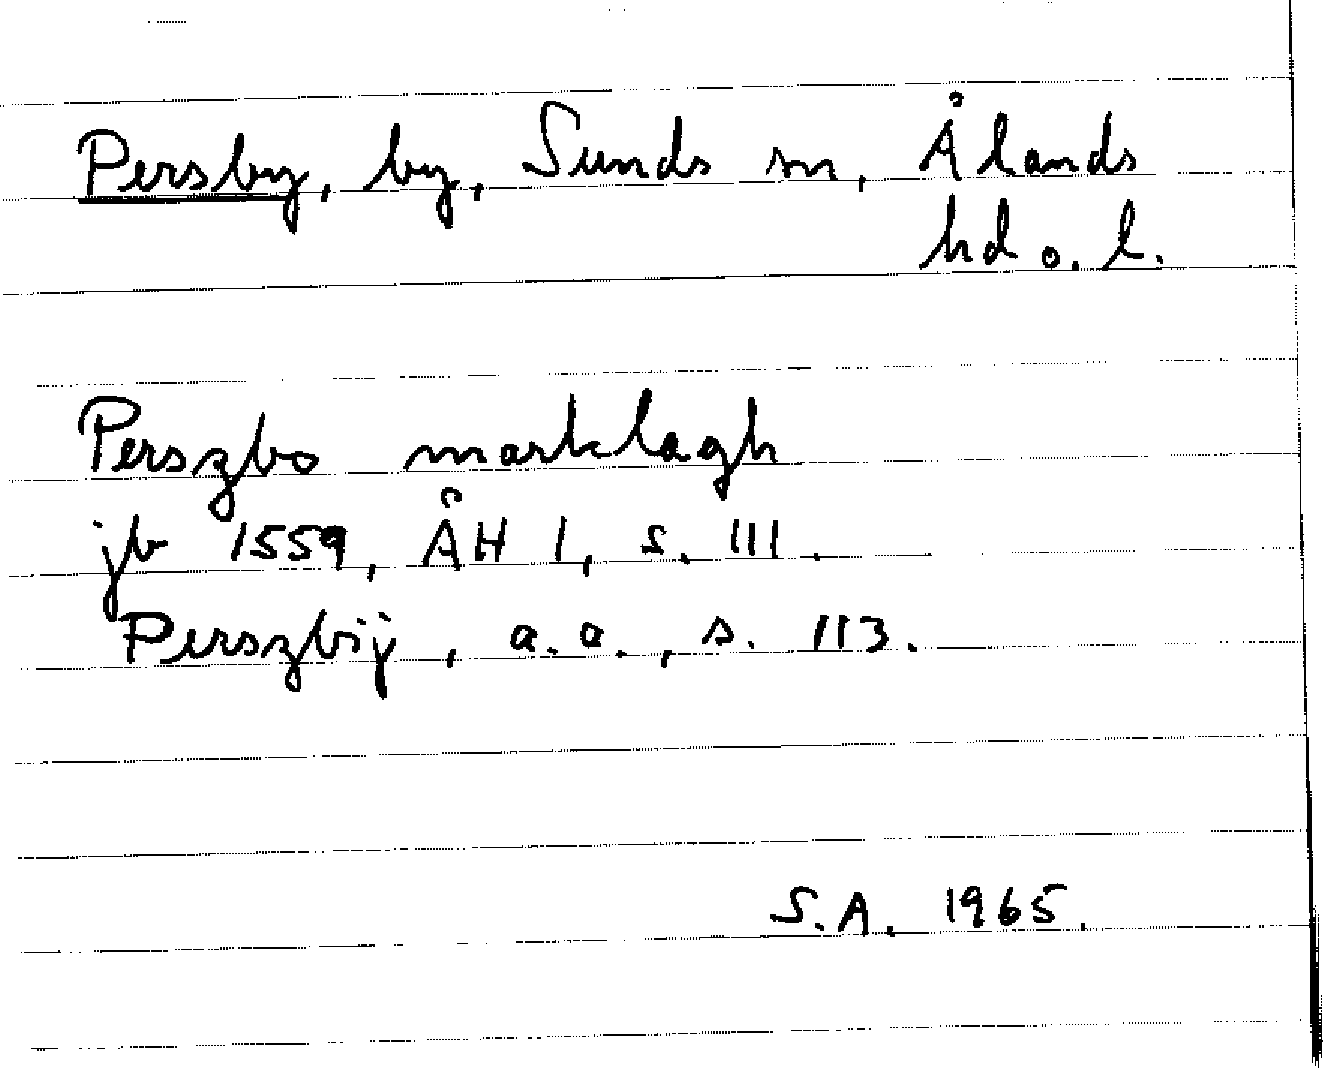 Persby, by, Sunds sn, Ålands
hd o. l.
Perszbo marklagh
jb 1559, ÅH I, s. 111.
Perszbÿ, a.a., s. 113.
S.A. 1965.